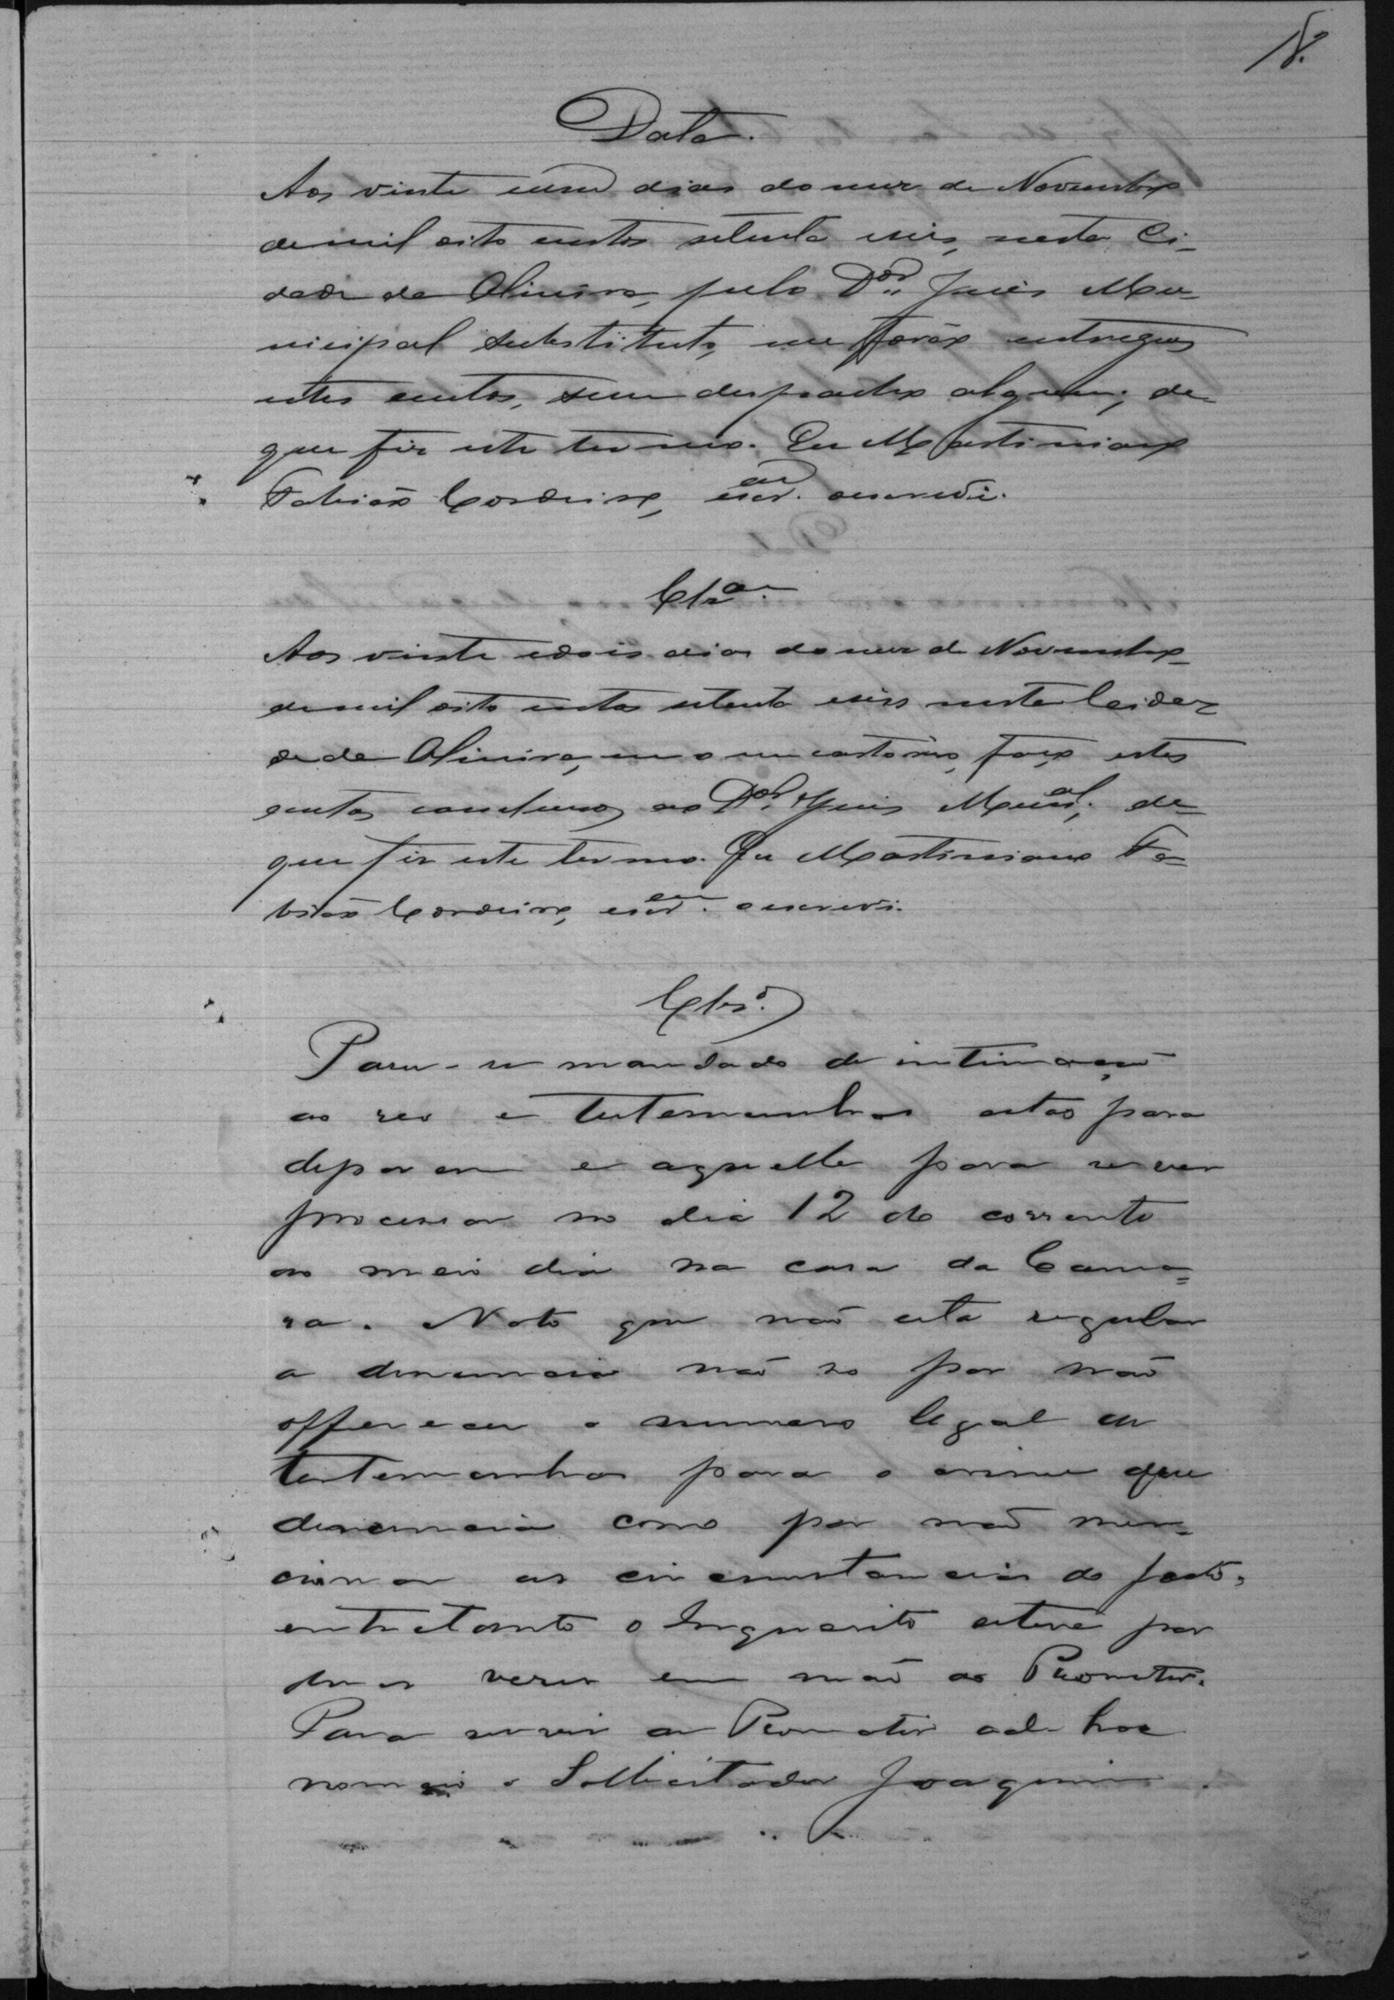 18.
Data.
Aos vinte eum dias do mez de Novembro
demil oito centos setenta eseis, nesta Ci-
dade da Oliveira, pelo Dor Juis Mu-
nicipal substituto, me forão entregues
estes autos, sem despacho algum; de
que fiz este termo. Eu Martiniano
Fabião Cordeiro, escam. oescrevi.
Clzam.
Aos vinte edois dias do mez de Novembro
demil oito centos setenta eseis nesta Cida-
de da Oliveira, em o meu cartorio, faço estes
autos conclusos ao Dor. Juis Munal., de
que fiz este termo. Eu Martiniano Fa-
bião Cordeiro, escam. oescrevi.
Clzos.
Passe-se mandado de intimação
ao reo e testemunhas estas para
deporem e aquelle para se ver
processar no dia 12 do corrente
ao meio dia na casa da Cama=
ra. Noto que não esta regular
a denuncia não so por não
offerecer o numero legal de
testemunhas para o crime que
denuncia como por não men-
cionar as circunstancias do facto,
entretanto o Inquerito esteve por
duas vezes em mão do Promotor.
Para servir de Promotor ad hoc
nomeio o Sollicitador Joaquim